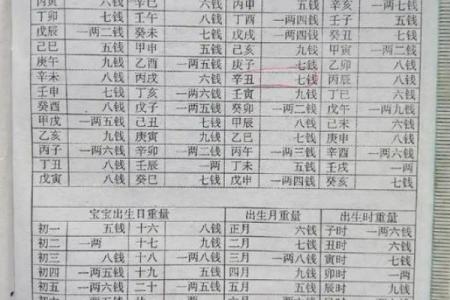 丁卯 七钱 壬午 八钱 丁酉 一两四钱 壬子 五钱
戊辰 一两二钱 癸未 七钱 戊戌 一两四钱 癸丑 七钱
己巳 五钱 甲申 五钱 己亥 九钱 甲寅 一两二钱
庚午 九钱 乙酉 一两五钱 庚子 七钱 乙卯 八钱
辛未 八钱 丙戌 六钱 辛丑 七钱 丙辰 八钱
壬申 七钱 丁亥 一两六钱 壬寅 九钱 丁巳 六钱
癸酉 八钱 戊子 一两五钱 癸卯 一两二钱 戊午 一两九钱
甲戌 一两五钱 己丑 七钱 甲辰 八钱 己未 六钱
乙亥 九钱 庚寅 九钱 乙巳 七钱 庚申 八钱
丙子 一两六钱 辛卯 一两二钱 丙午 一两三钱 辛酉 一两六钱
丁丑 八钱 壬辰 一两 丁未 五钱 壬戌 一两
戊寅 八钱 癸巳 七钱 戊申 一两四钱 癸亥 七钱
宝宝出生日重量 出生月重量 出生时重量
初一 五钱 十六 八钱 正月 六钱 子时 一两六钱
初二 一两 十七 九钱 二月 七钱 丑时 六钱
初三 八钱 十八 一两八钱 三月 一两八钱 寅时 七钱
初四 一两五钱 十九 五钱 四月 九钱 卯时 一两
初五 一两六钱 二十 一两五钱 五月 五钱 辰时 九钱